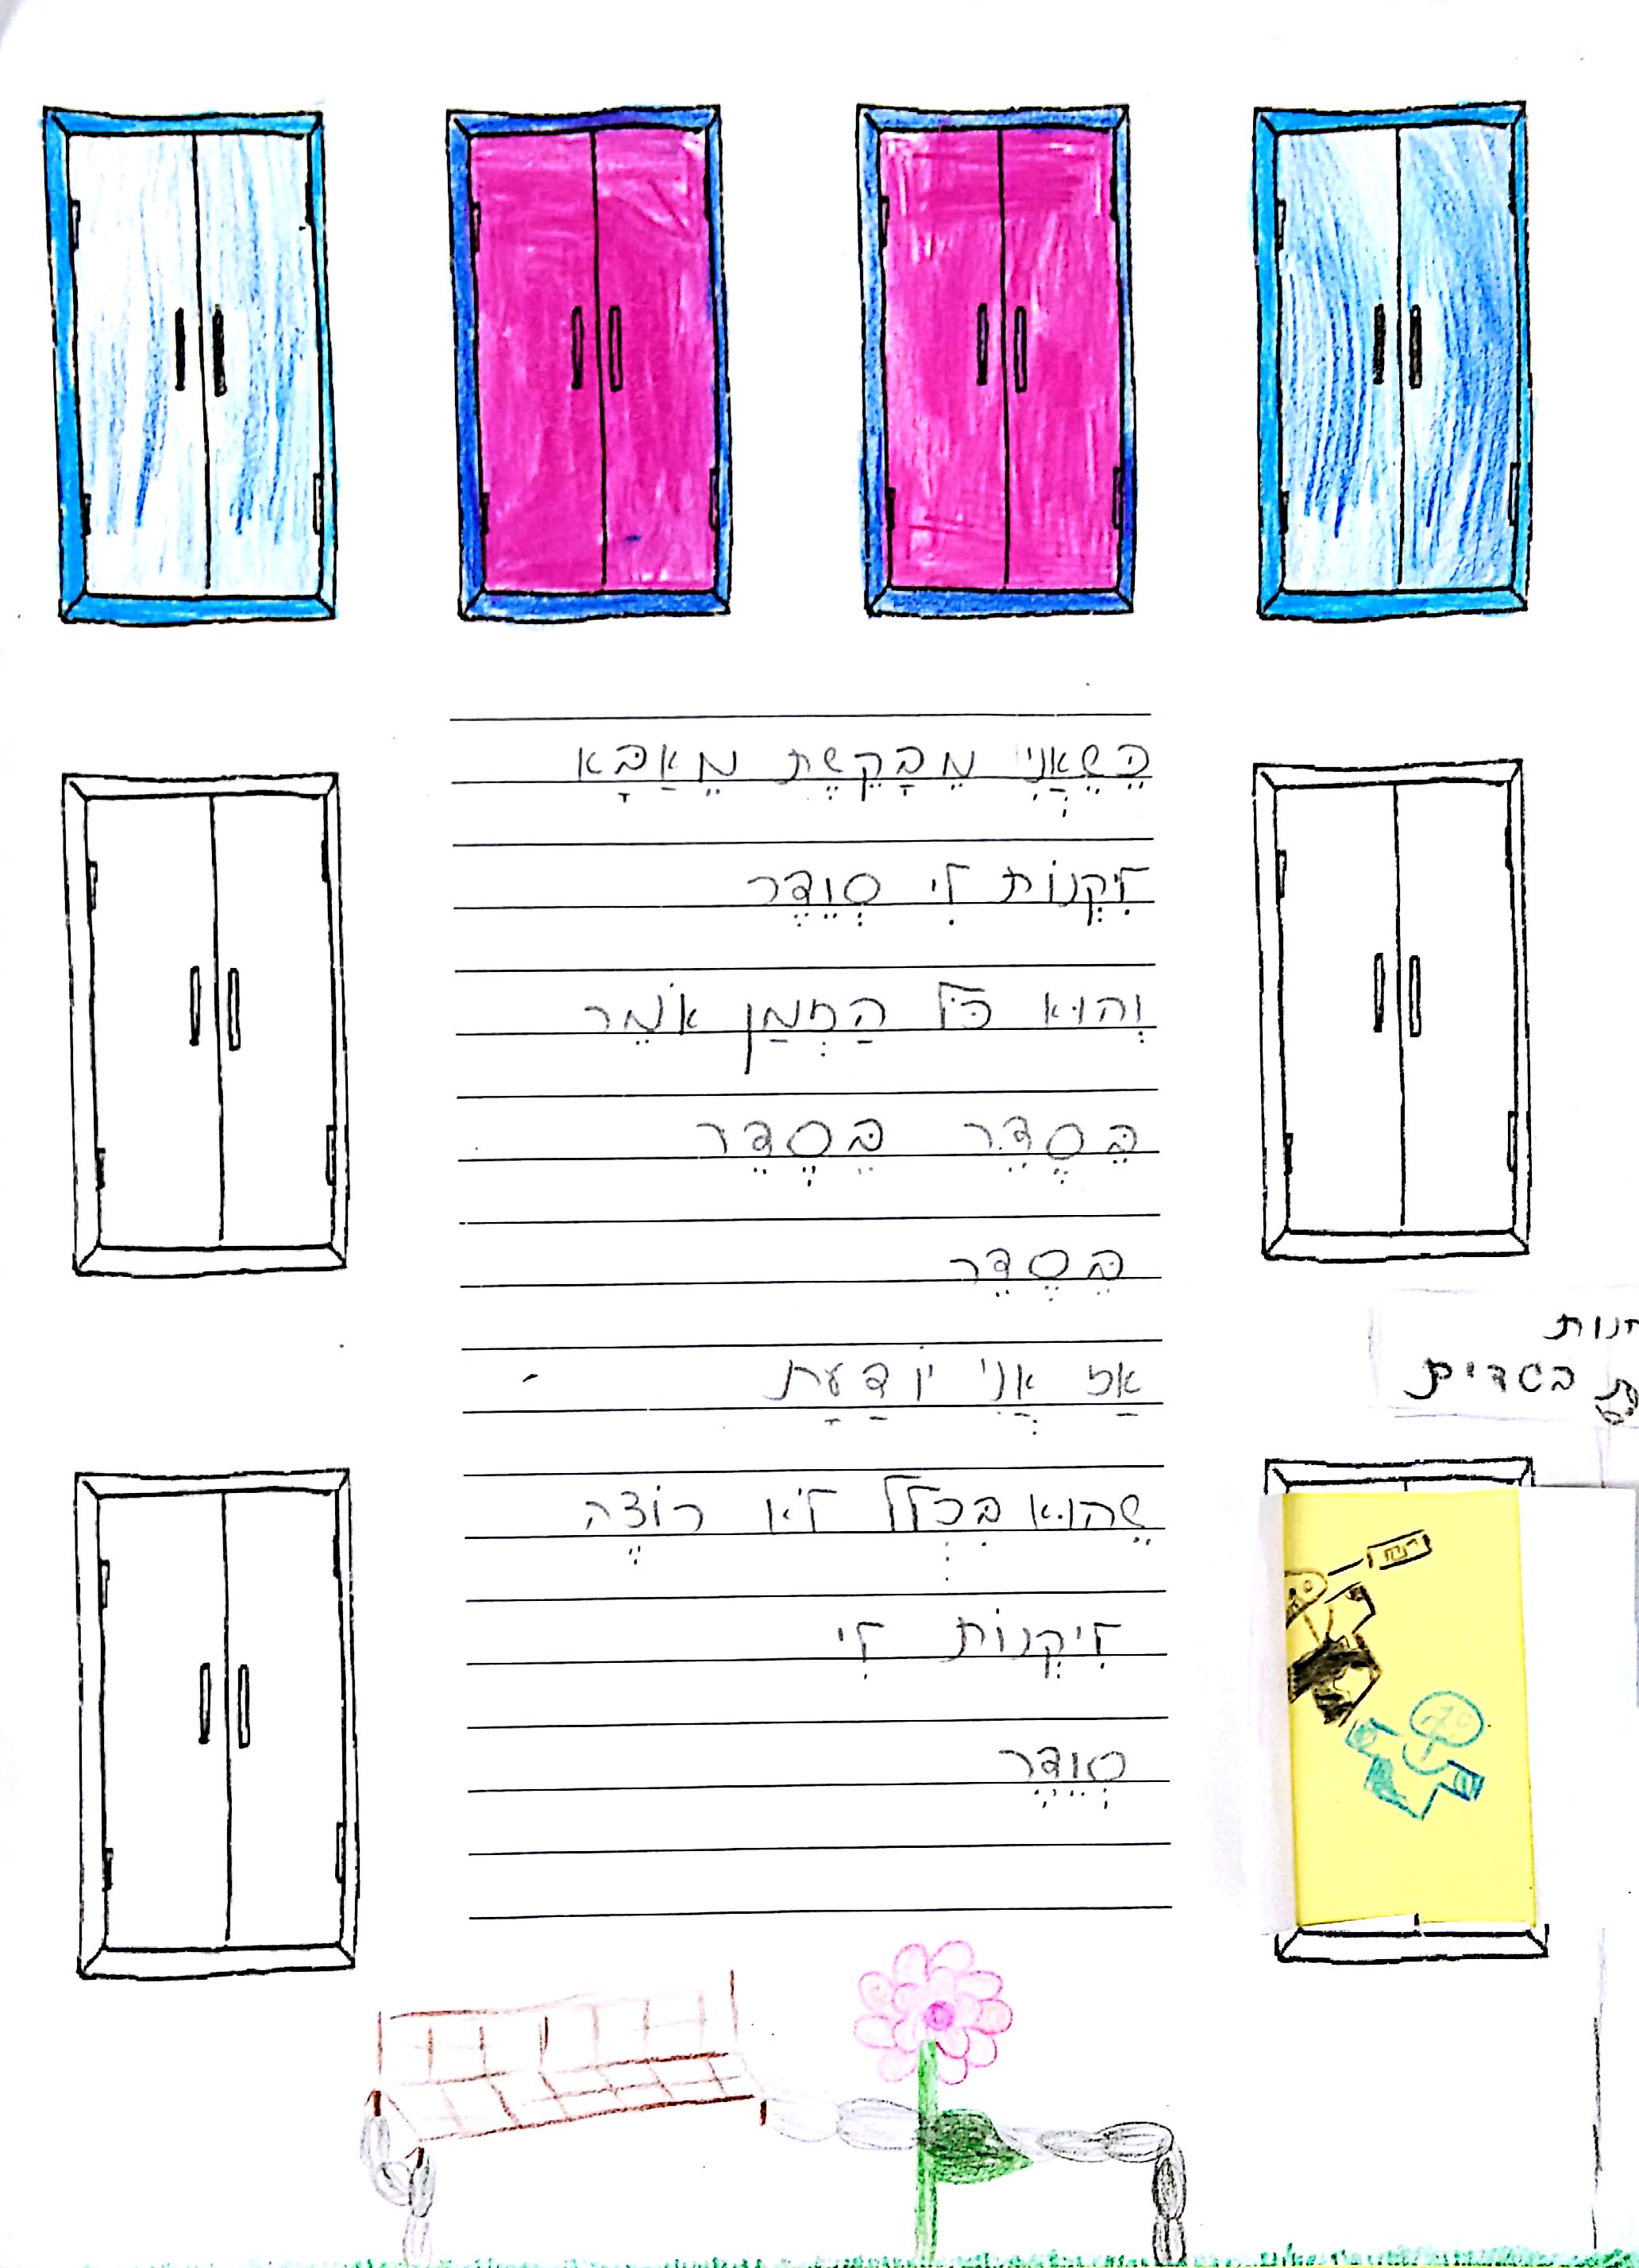 כֵּשֶׁאֲנִי מֵבָקֵשֶׁת מֵאַבָּא
לִקְנוֹת לִי סְוֵדֶר
וְהוּא כֹּל הַזְמַן אֹמֶר
בֵּסֶדֵר בֵּסֶדֵר
בֵּסֶדֵר
אַז אֲנִי יוֹדַעַת
שֶׁהוּא בִּכְלַל לֹא רוֹצֶה
לִיקְנוֹת לִי
סְוֵדֶר
חנות
בגדים